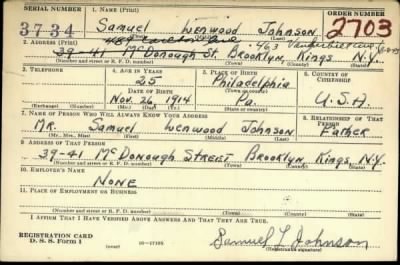 SERIAL NUMBER
1. NAME (Print)
ORDER NUMBER
3734
Samuel Wenwood Johnson
2703
(First) (Middle) (Last)
2. ADDRESS (Print)
463 Vanderbilt Ave.
39-41 McDonough St. Brooklyn Kings N.Y.
(Number and street or R. F. D. number) (Town) (County) (State)
3. TELEPHONE
4. AGE IN YEARS
5. PLACE OF BIRTH
6. COUNTRY OF CITIZENSHIP
25
Philadelphia
DATE OF BIRTH
(Town or county)
Nov. 26, 1914
Pa.
U.S.A.
(Exchange) (Number)
(Mo.) (Day) (Yr.)
(State or country)
7. NAME OF PERSON WHO WILL ALWAYS KNOW YOUR ADDRESS
8. RELATIONSHIP OF THAT PERSON
Mr. Samuel Wenwood Johnson
Father
(Mr., Mrs., Miss) (First) (Middle) (Last)
9. ADDRESS OF THAT PERSON
39-41 McDonough Street Brooklyn, Kings, N.Y.
(Number and street or R. F. D. number) (Town) (County) (State)
10. EMPLOYER'S NAME
None
11. PLACE OF EMPLOYMENT OR BUSINESS
(Number and street or R. F. D. number) (Town) (County) (State)
I AFFIRM THAT I HAVE VERIFIED ABOVE ANSWERS AND THAT THEY ARE TRUE.
REGISTRATION CARD
D. S. S. Form 1
(over)
16-17105
Samuel L Johnson
(Registrant's signature)